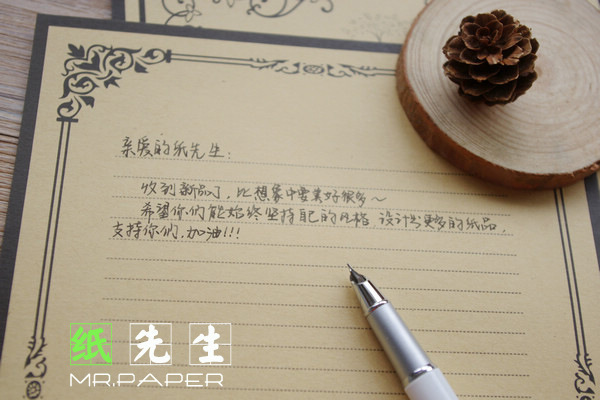 亲爱的纸先生:
收到新品了,比想象中要美好很多~
希望你们能始终坚持自己的风格,设计出更多的纸品,
支持你们,加油!!!
纸先生
MR.PAPER